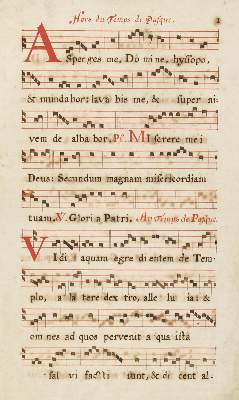 Hors du Temps de Pasque. 1
ASperges me, Domine, hyssopo,
& mundabor: lava bis me, & super ni-
vem de alba bor. Ps. MIserere mei
Deus: Secundum magnam misericordiam
tuam. V. Gloria Patri. Au Temps de Pasque.
VIdi aquam egre di entem de Tem-
plo, a la tere dex tro, alle lu ia: &
om nes ad quos pervenit a qua ista
sal vi facti sunt, & di cent al-